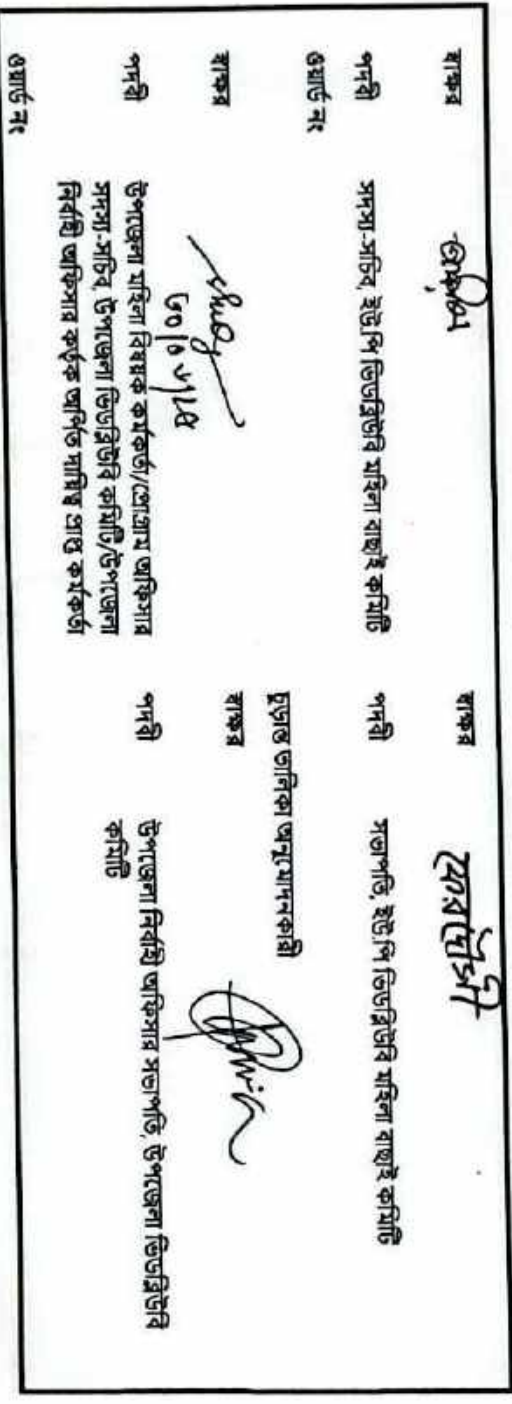 স্বাক্ষর
পদবী সদস্য-সচিব, ইউপি ভিডব্লিউবি মহিলা বাছাই কমিটি
ওয়ার্ড নং
স্বাক্ষর
পদবী উপজেলা মহিলা বিষয়ক কর্মকর্তা/প্রোগ্রাম অফিসার
সদস্য-সচিব, উপজেলা ভিডব্লিউবি কমিটি/উপজেলা
নির্বাহী অফিসার কর্তৃক অর্পিত দায়িত্ব প্রাপ্ত কর্মকর্তা
ওয়ার্ড নং
স্বাক্ষর
পদবী সভাপতি, ইউপি ভিডব্লিউবি মহিলা বাছাই কমিটি
চুড়ান্ত তালিকা অনুমোদনকারী
স্বাক্ষর
পদবী উপজেলা নির্বাহী অফিসার সভাপতি, উপজেলা ভিডব্লিউবি
কমিটি